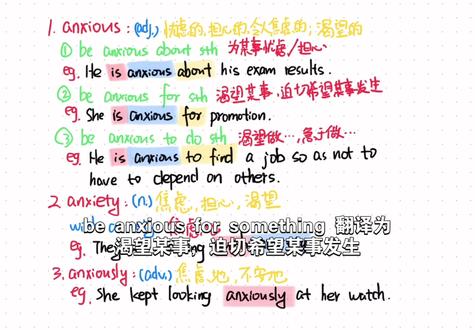 1. anxious: (adj.) 忧虑的, 担心的, 令人焦虑的; 渴望的
① be anxious about sth 为某事忧虑/担心
eg. He is anxious about his exam results.
② be anxious for sth 渴望某事, 迫切希望某事发生
eg. She is anxious for promotion.
③ be anxious to do sth 渴望做…, 急于做…
eg. He is anxious to find a job so as not to
have to depend on others.
2. anxiety: (n.) 焦虑, 担心, 渴望
be anxious for something 翻译为
渴望某事, 迫切希望某事发生
3. anxiously: (adv.) 焦虑地, 不安地
eg. She kept looking anxiously at her watch.